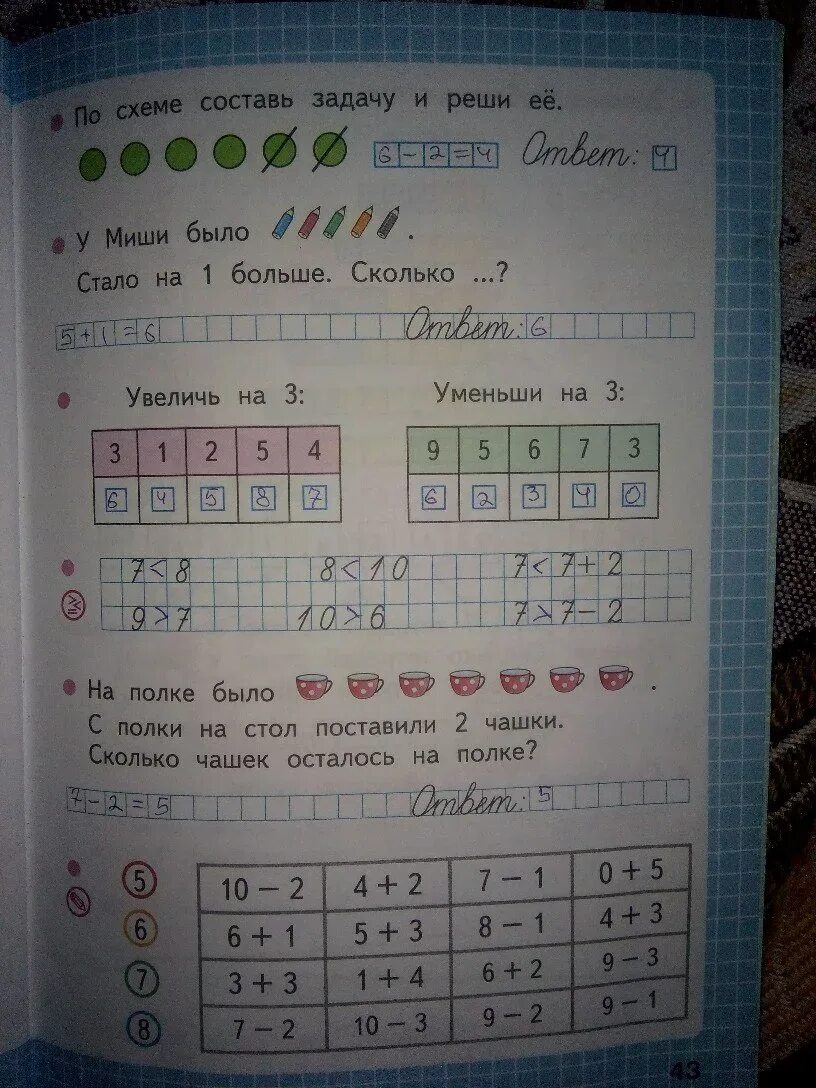 По схеме составь задачу и реши её.
6-2=4 Ответ: 4
У Миши было .
Стало на 1 больше. Сколько ...?
5+1=6 Ответ: 6
Увеличь на 3: Уменьши на 3:
3 1 2 5 4 9 5 6 7 3
6 4 5 8 7 6 2 3 4 0
7<8 8<10 7<7+2
9>7 10>6 7>7-2
На полке было .
С полки на стол поставили 2 чашки.
Сколько чашек осталось на полке?
7-2=5 Ответ: 5
5 10 − 2 4 + 2 7 − 1 0 + 5
6 6 + 1 5 + 3 8 − 1 4 + 3
7 3 + 3 1 + 4 6 + 2 9 − 3
8 7 − 2 10 − 3 9 − 2 9 − 1
43